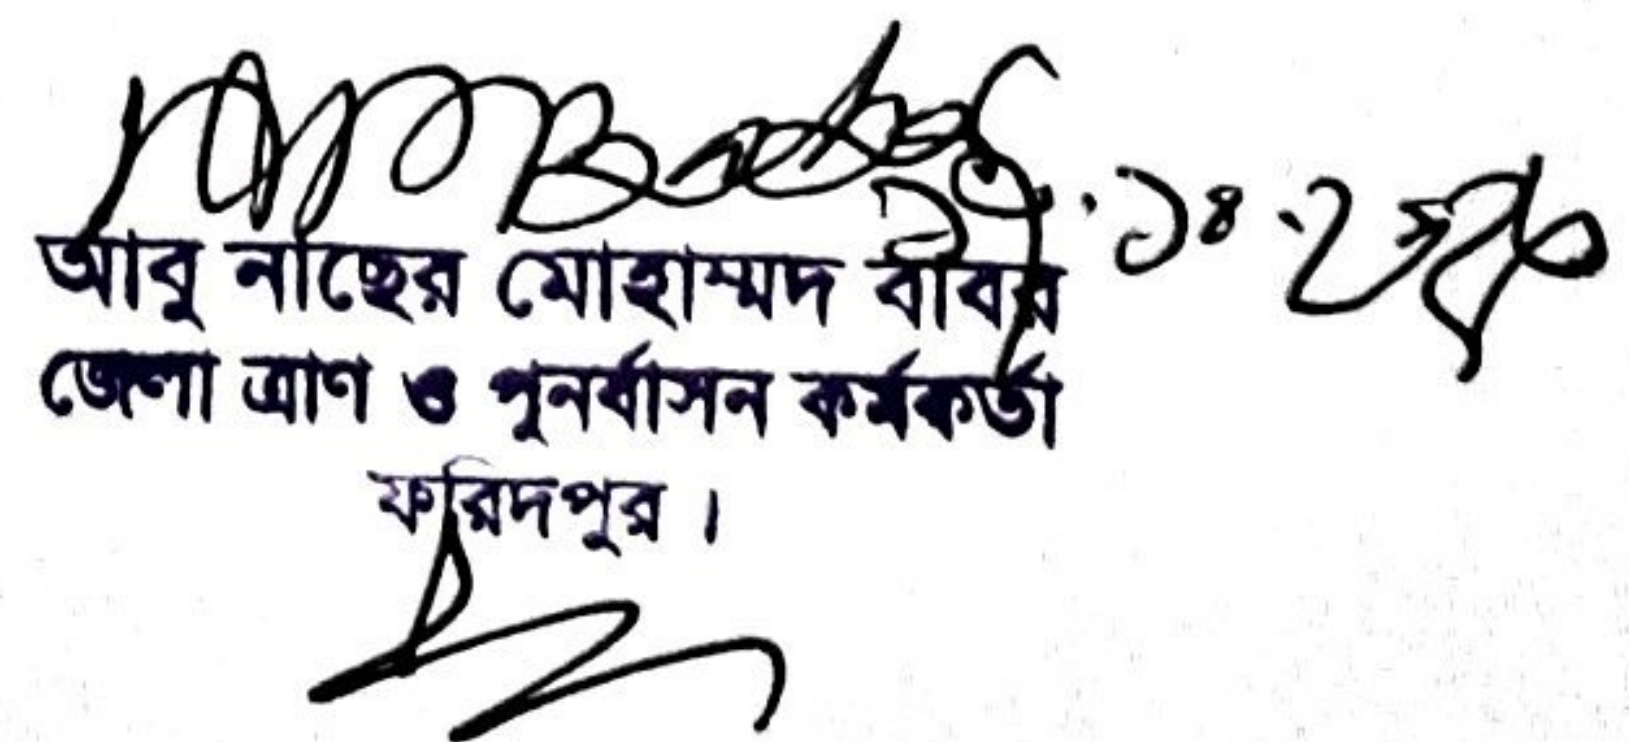 আবু নাছের মোহাম্মদ বাবর
জেলা ত্রাণ ও পুনর্বাসন কর্মকর্তা
ফরিদপুর।